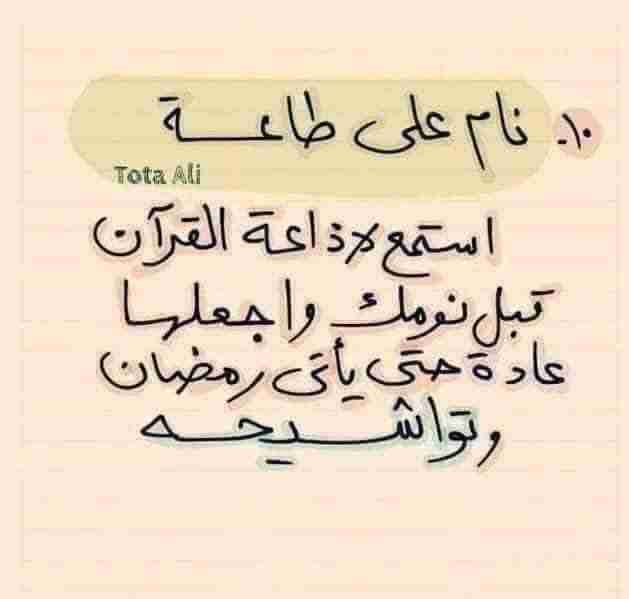 ١٠. نام على طاعة
Tota Ali
استمع لاذاعة القرآن
قبل نومك واجعلها
عادة حتى يأتى رمضان
وتواشيحه